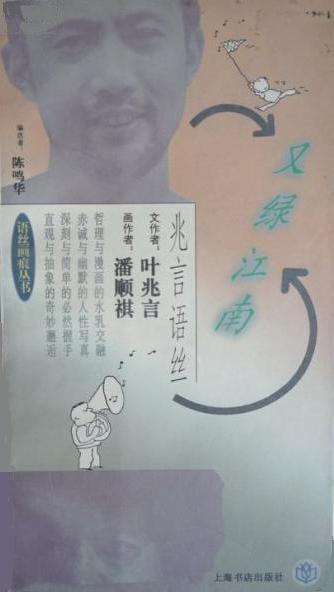 又绿江南
兆言语丝
文作者：叶兆言
画作者：潘顺祺
哲理与漫画的水乳交融
赤诚与幽默的人性写真
深刻与简单的必然握手
直观与抽象的奇妙邂逅
语丝画痕丛书
编选者：陈鸣华
上海书店出版社